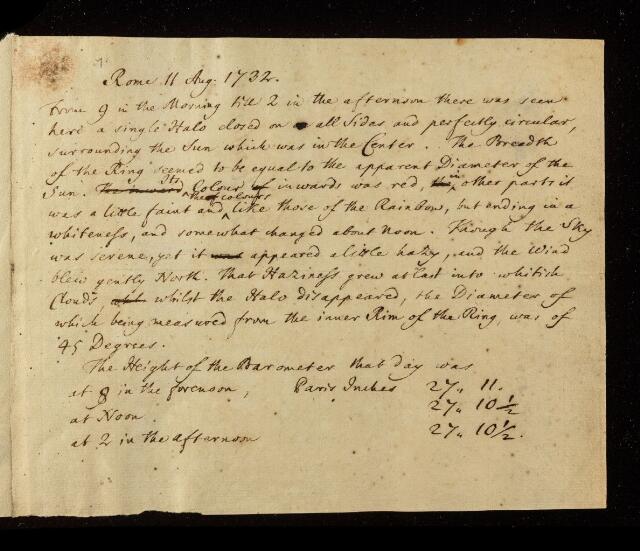 Rome 11 Aug. 1732.
From 9 in the Morning till 2 in the afternoon there was seen
here a single Halo closed on all Sides and perfectly circular,
surrounding the Sun which was in the Center. The Breadth
of the Ring seemed to be equal to the apparent Diameter of the
Sun. The inward Its Colour of inwards was red, in other parts it
was a little faint and the colours like those of the Rainbow, but ending in a
whiteness, and somewhat changed about noon. Though the Sky
was serene, yet it was appeared a little hazy, and the Wind
blew gently North. That Haziness grew at last into whitish
Clouds, whilst the Halo disappeared, the Diameter of
which being measured from the inner Rim of the Ring, was of
45 Degrees.
The Height of the Barometer that day was
at 8 in the forenoon, Paris Inches 27,, 11.
at Noon 27,, 10 1/2
at 2 in the afternoon 27,, 10 1/2.